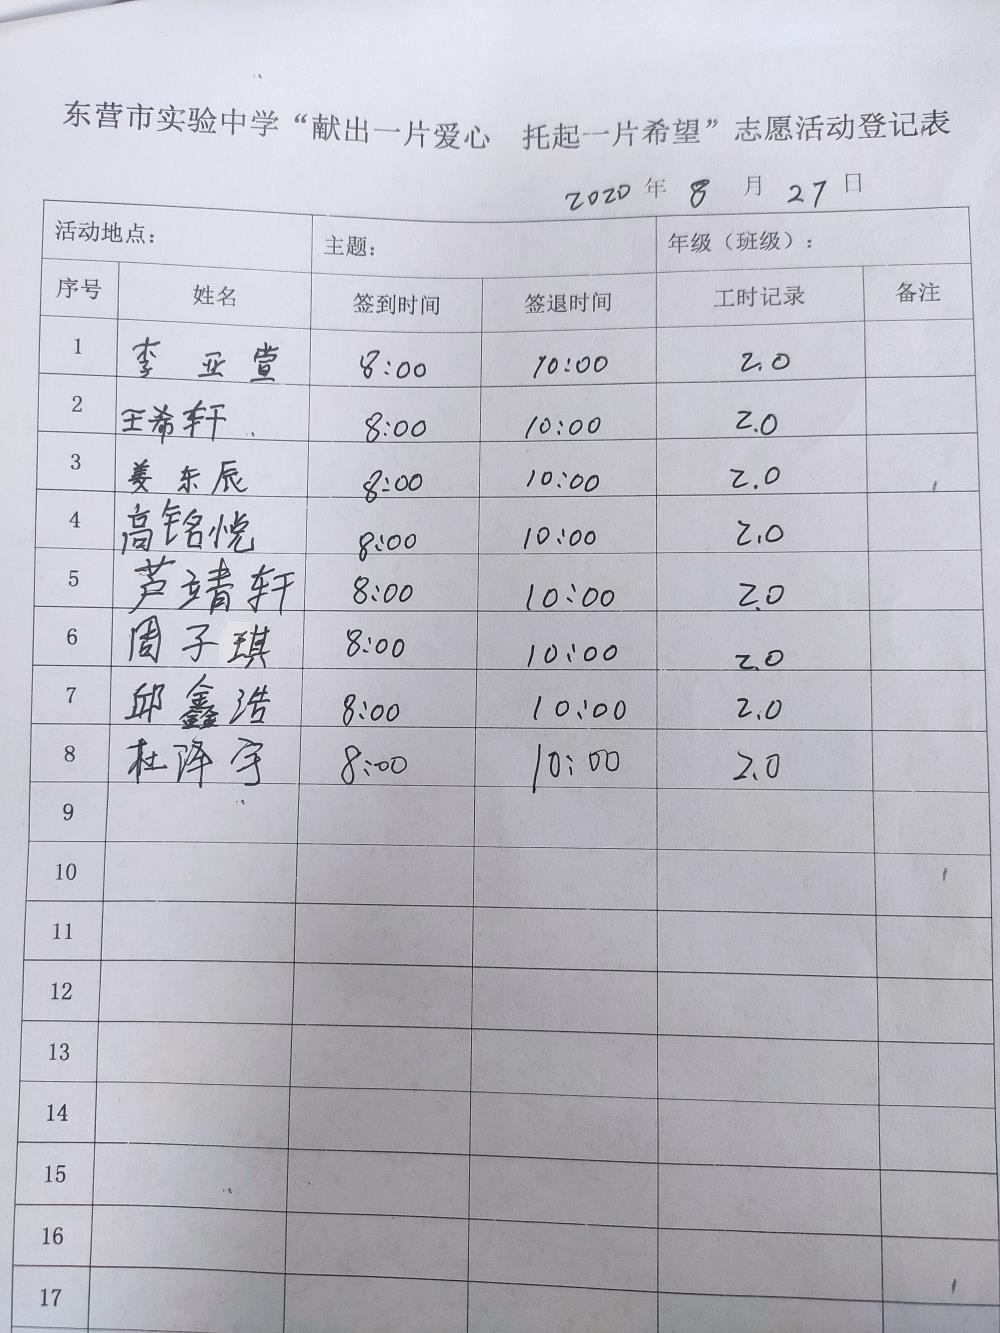 东营市实验中学“献出一片爱心 托起一片希望”志愿活动登记表
2020 年 8 月 27 日
活动地点： 主题： 年级（班级）：
序号 姓名 签到时间 签退时间 工时记录 备注
1 李亚萱 8:00 10:00 2.0
2 王希轩 8:00 10:00 2.0
3 姜东辰 8:00 10:00 2.0
4 高铭悦 8:00 10:00 2.0
5 芦靖轩 8:00 10:00 2.0
6 周子琪 8:00 10:00 2.0
7 邱鑫浩 8:00 10:00 2.0
8 杜泽宇 8:00 10:00 2.0
9
10
11
12
13
14
15
16
17